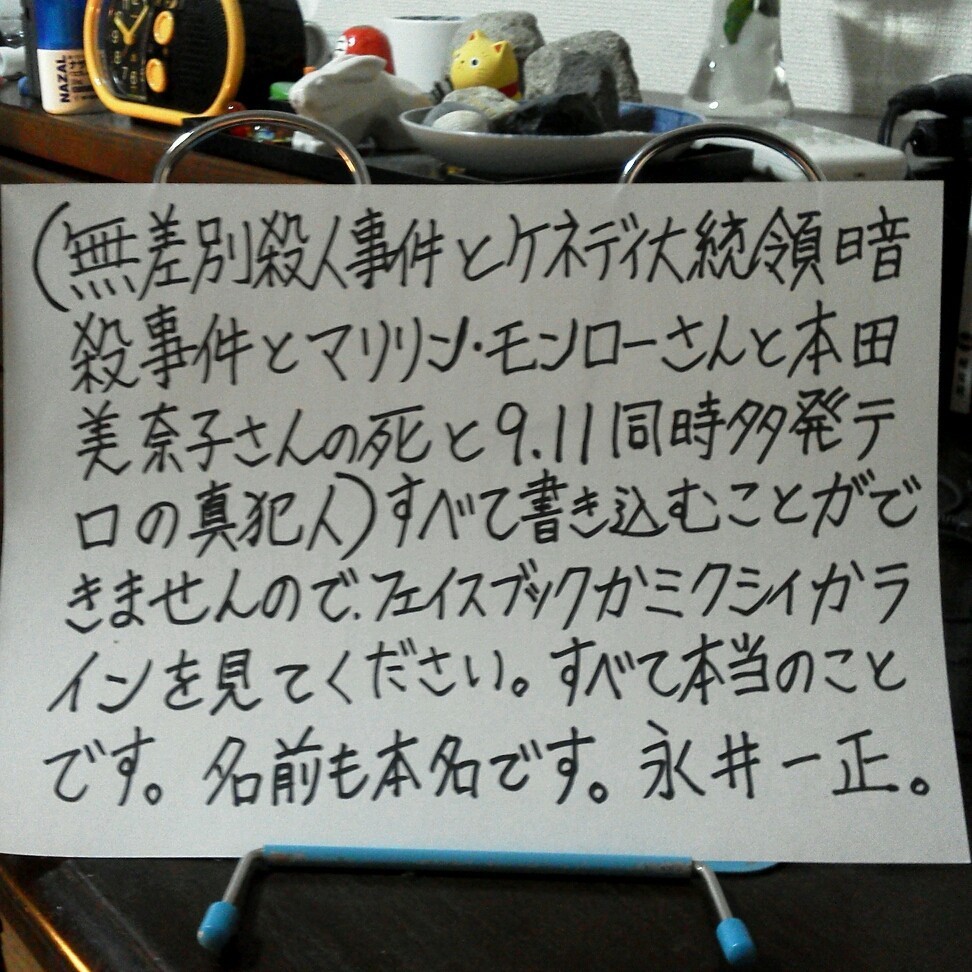 NAZAL
(無差別殺人事件とケネディ大統領暗
殺事件とマリリン・モンローさんと本田
美奈子さんの死と9.11同時多発テ
ロの真犯人)すべて書き込むことがで
きませんので、フェイスブックかミクシィかラ
インを見てください。すべて本当のこと
です。名前も本名です。永井一正。